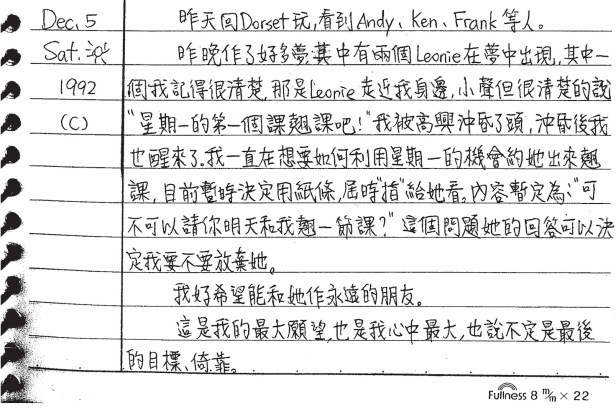 Dec. 5 昨天回Dorset玩,看到Andy、Ken、Frank 等人。
Sat. 昨晚作了好多夢,其中有兩個Leonie在夢中出現,其中一
1992 個我記得很清楚,那是Leonie走近我身邊,小聲但很清楚的說
(C) "星期一的第一個課翹課吧!"我被高興沖昏了頭,沖昏後我
也醒來了.我一直在想要如何利用星期一的機會約她出來翹
課,目前暫時決定用紙條,屆時"指"給她看。內容暫定為:"可
不可以請你明天和我翹一節課?" 這個問題她的回答可以決
定我要不要放棄她。
我好希望能和她作永遠的朋友。
這是我的最大願望,也是我心中最大,也說不定是最後
的目標、倚靠。
Fullness 8 m/m × 22